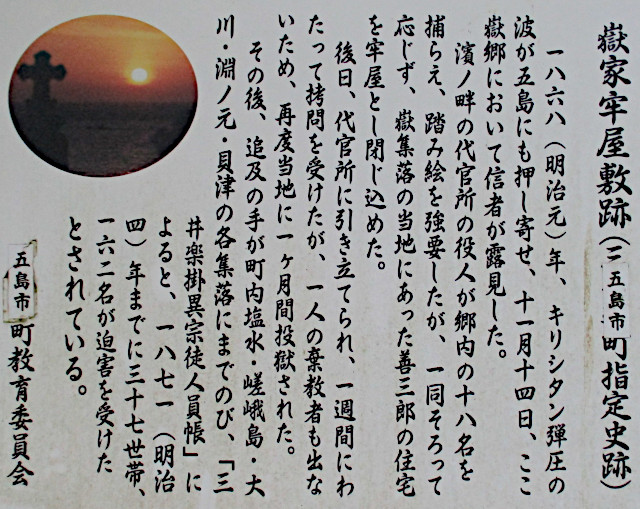 嶽家牢屋敷跡(三五島市町指定史跡)
一八六八(明治元)年、キリシタン弾圧の
波が五島にも押し寄せ、十一月十四日、ここ
嶽郷において信者が露見した。
濱ノ畔の代官所の役人が郷内の十八名を
捕らえ、踏み絵を強要したが、一同そろって
応じず、嶽集落の当地にあった善三郎の住宅
を牢屋とし閉じ込めた。
後日、代官所に引き立てられ、一週間にわ
たって拷問を受けたが、一人の棄教者も出な
いため、再度当地に一ヶ月間投獄された。
その後、追及の手が町内塩水・嵯峨島・大
川・淵ノ元・貝津の各集落にまでのび、「三
井楽掛異宗徒人員帳」に
よると、一八七一(明治
四)年までに三十七世帯、
一六二名が迫害を受けた
とされている。
五島市町教育委員会